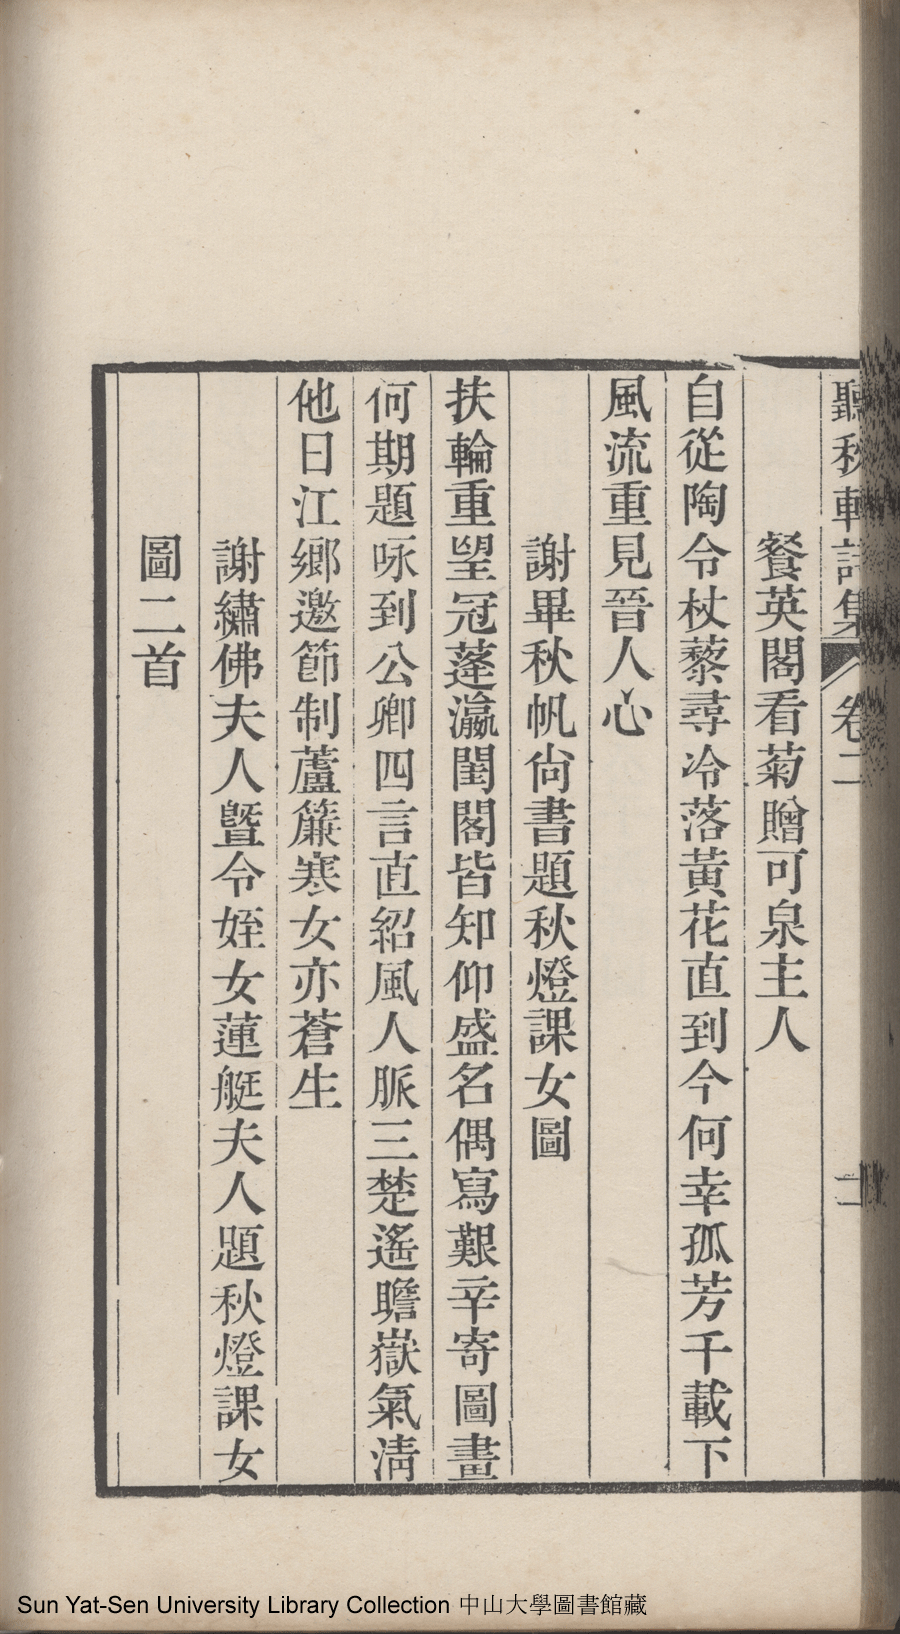 聽秋軒詩集 卷二
餐英閣看菊贈可泉主人
自從陶令杖藜尋冷落黃花直到今何幸孤芳千載下
風流重見晉人心
謝畢秋帆尙書題秋燈課女圖
扶輪重望冠蓬瀛閨閣皆知仰盛名偶寫艱辛寄圖畫
何期題咏到公卿四言直紹風人脈三楚遙瞻嶽氣淸
他日江鄉邀節制蘆簾寒女亦蒼生
謝繡佛夫人曁令姪女蓮艇夫人題秋燈課女
圖二首
Sun Yat-Sen University Library Collection 中山大學圖書館藏